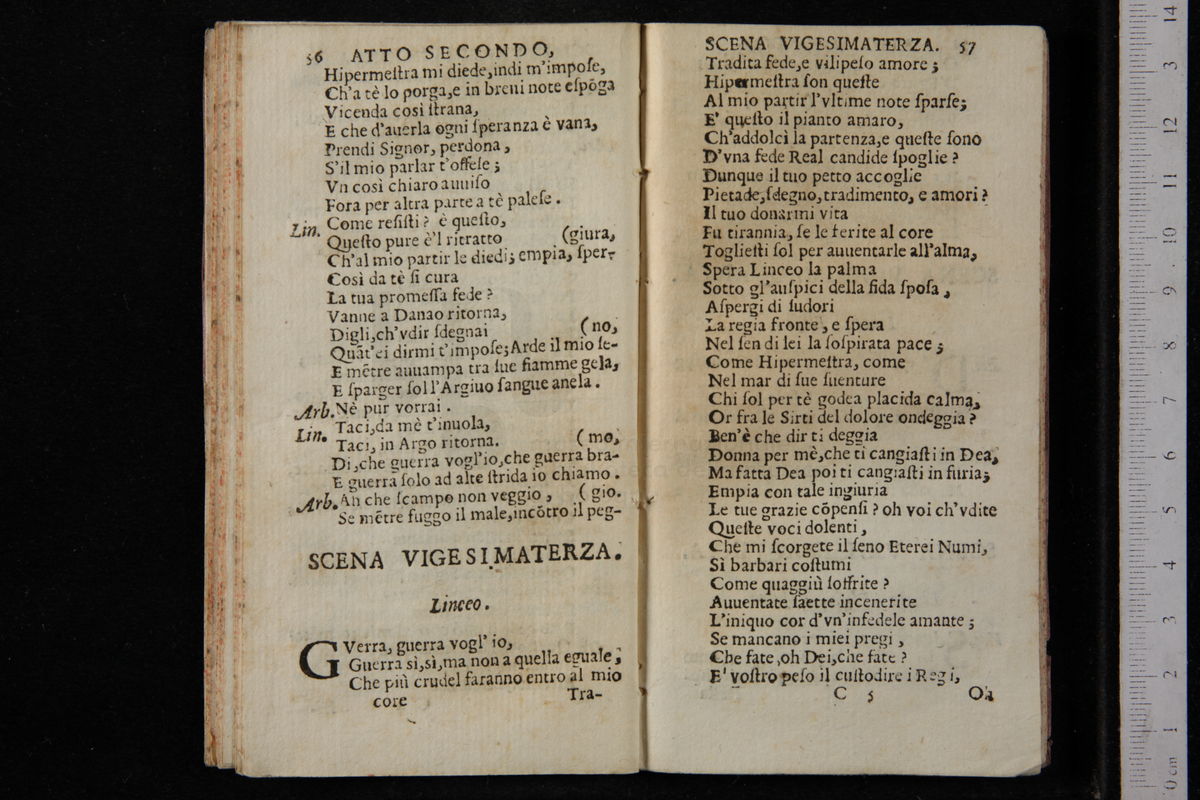 56 ATTO SECONDO,
Hipermeſtra mi diede,indi m'impoſe,
Ch'a tè lo porga,e in breui note eſpõga
Vicenda così ſtrana,
E che d'auerla ogni ſperanza è vana,
Prendi Signor, perdona,
S'il mio parlar t'offeſe;
Vn così chiaro auuiſo
Fora per altra parte a tè paleſe.
Lin. Come reſiſti? è queſto,
Queſto pure è'l ritratto (giura,
Ch'al mio partir le diedi; empia, ſper-
Così da tè ſi cura
La tua promeſſa fede?
Vanne a Danao ritorna,
Digli,ch'vdir ſdegnai (no,
Quãt'ei dirmi t'impoſe;Arde il mio ſe-
E mẽtre auuampa tra ſue fiamme gela,
E ſparger ſol l'Argiuo ſangue anela.
Arb. Nè pur vorrai.
Lin. Taci,da mè t'inuola,
Taci, in Argo ritorna. (mo,
Di,che guerra vogl'io,che guerra bra-
E guerra ſolo ad alte ſtrida io chiamo.
Arb. Ah che ſcampo non veggio, (gio.
Se mẽtre fuggo il male,incõtro il peg-
SCENA VIGESIMATERZA.
Linceo.
GVerra, guerra vogl' io,
Guerra sì,sì,ma non a quella eguale,
Che più crudel faranno entro al mio
core Tra-
SCENA VIGESIMATERZA. 57
Tradita fede,e vilipeſo amore;
Hipermeſtra ſon queſte
Al mio partir l'vltime note ſparſe;
E' queſto il pianto amaro,
Ch'addolcì la partenza,e queſte ſono
D'vna fede Real candide ſpoglie?
Dunque il tuo petto accoglie
Pietade,ſdegno,tradimento, e amori?
Il tuo donarmi vita
Fu tirannia, ſe le ferite al core
Toglieſti ſol per auuentarle all'alma,
Spera Linceo la palma
Sotto gl'auſpici della fida ſpoſa,
Aſpergi di ſudori
La regia fronte, e ſpera
Nel ſen di lei la ſoſpirata pace;
Come Hipermeſtra, come
Nel mar di ſue ſuenture
Chi ſol per tè godea placida calma,
Or fra le Sirti del dolore ondeggia?
Ben'è che dir ti deggia
Donna per mè,che ti cangiaſti in Dea,
Ma fatta Dea poi ti cangiaſti in furia;
Empia con tale ingiuria
Le tue grazie cõpenſi? oh voi ch'vdite
Queſte voci dolenti,
Che mi ſcorgete il ſeno Eterei Numi,
Sì barbari coſtumi
Come quaggiù ſoffrite?
Auuentate ſaette incenerite
L'iniquo cor d'vn'infedele amante;
Se mancano i miei pregi,
Che fate,oh Dei,che fate?
E' voſtro peſo il cuſtodire i Regi,
C 5 Oa
0 cm 1 2 3 4 5 6 7 8 9 10 11 12 3 14